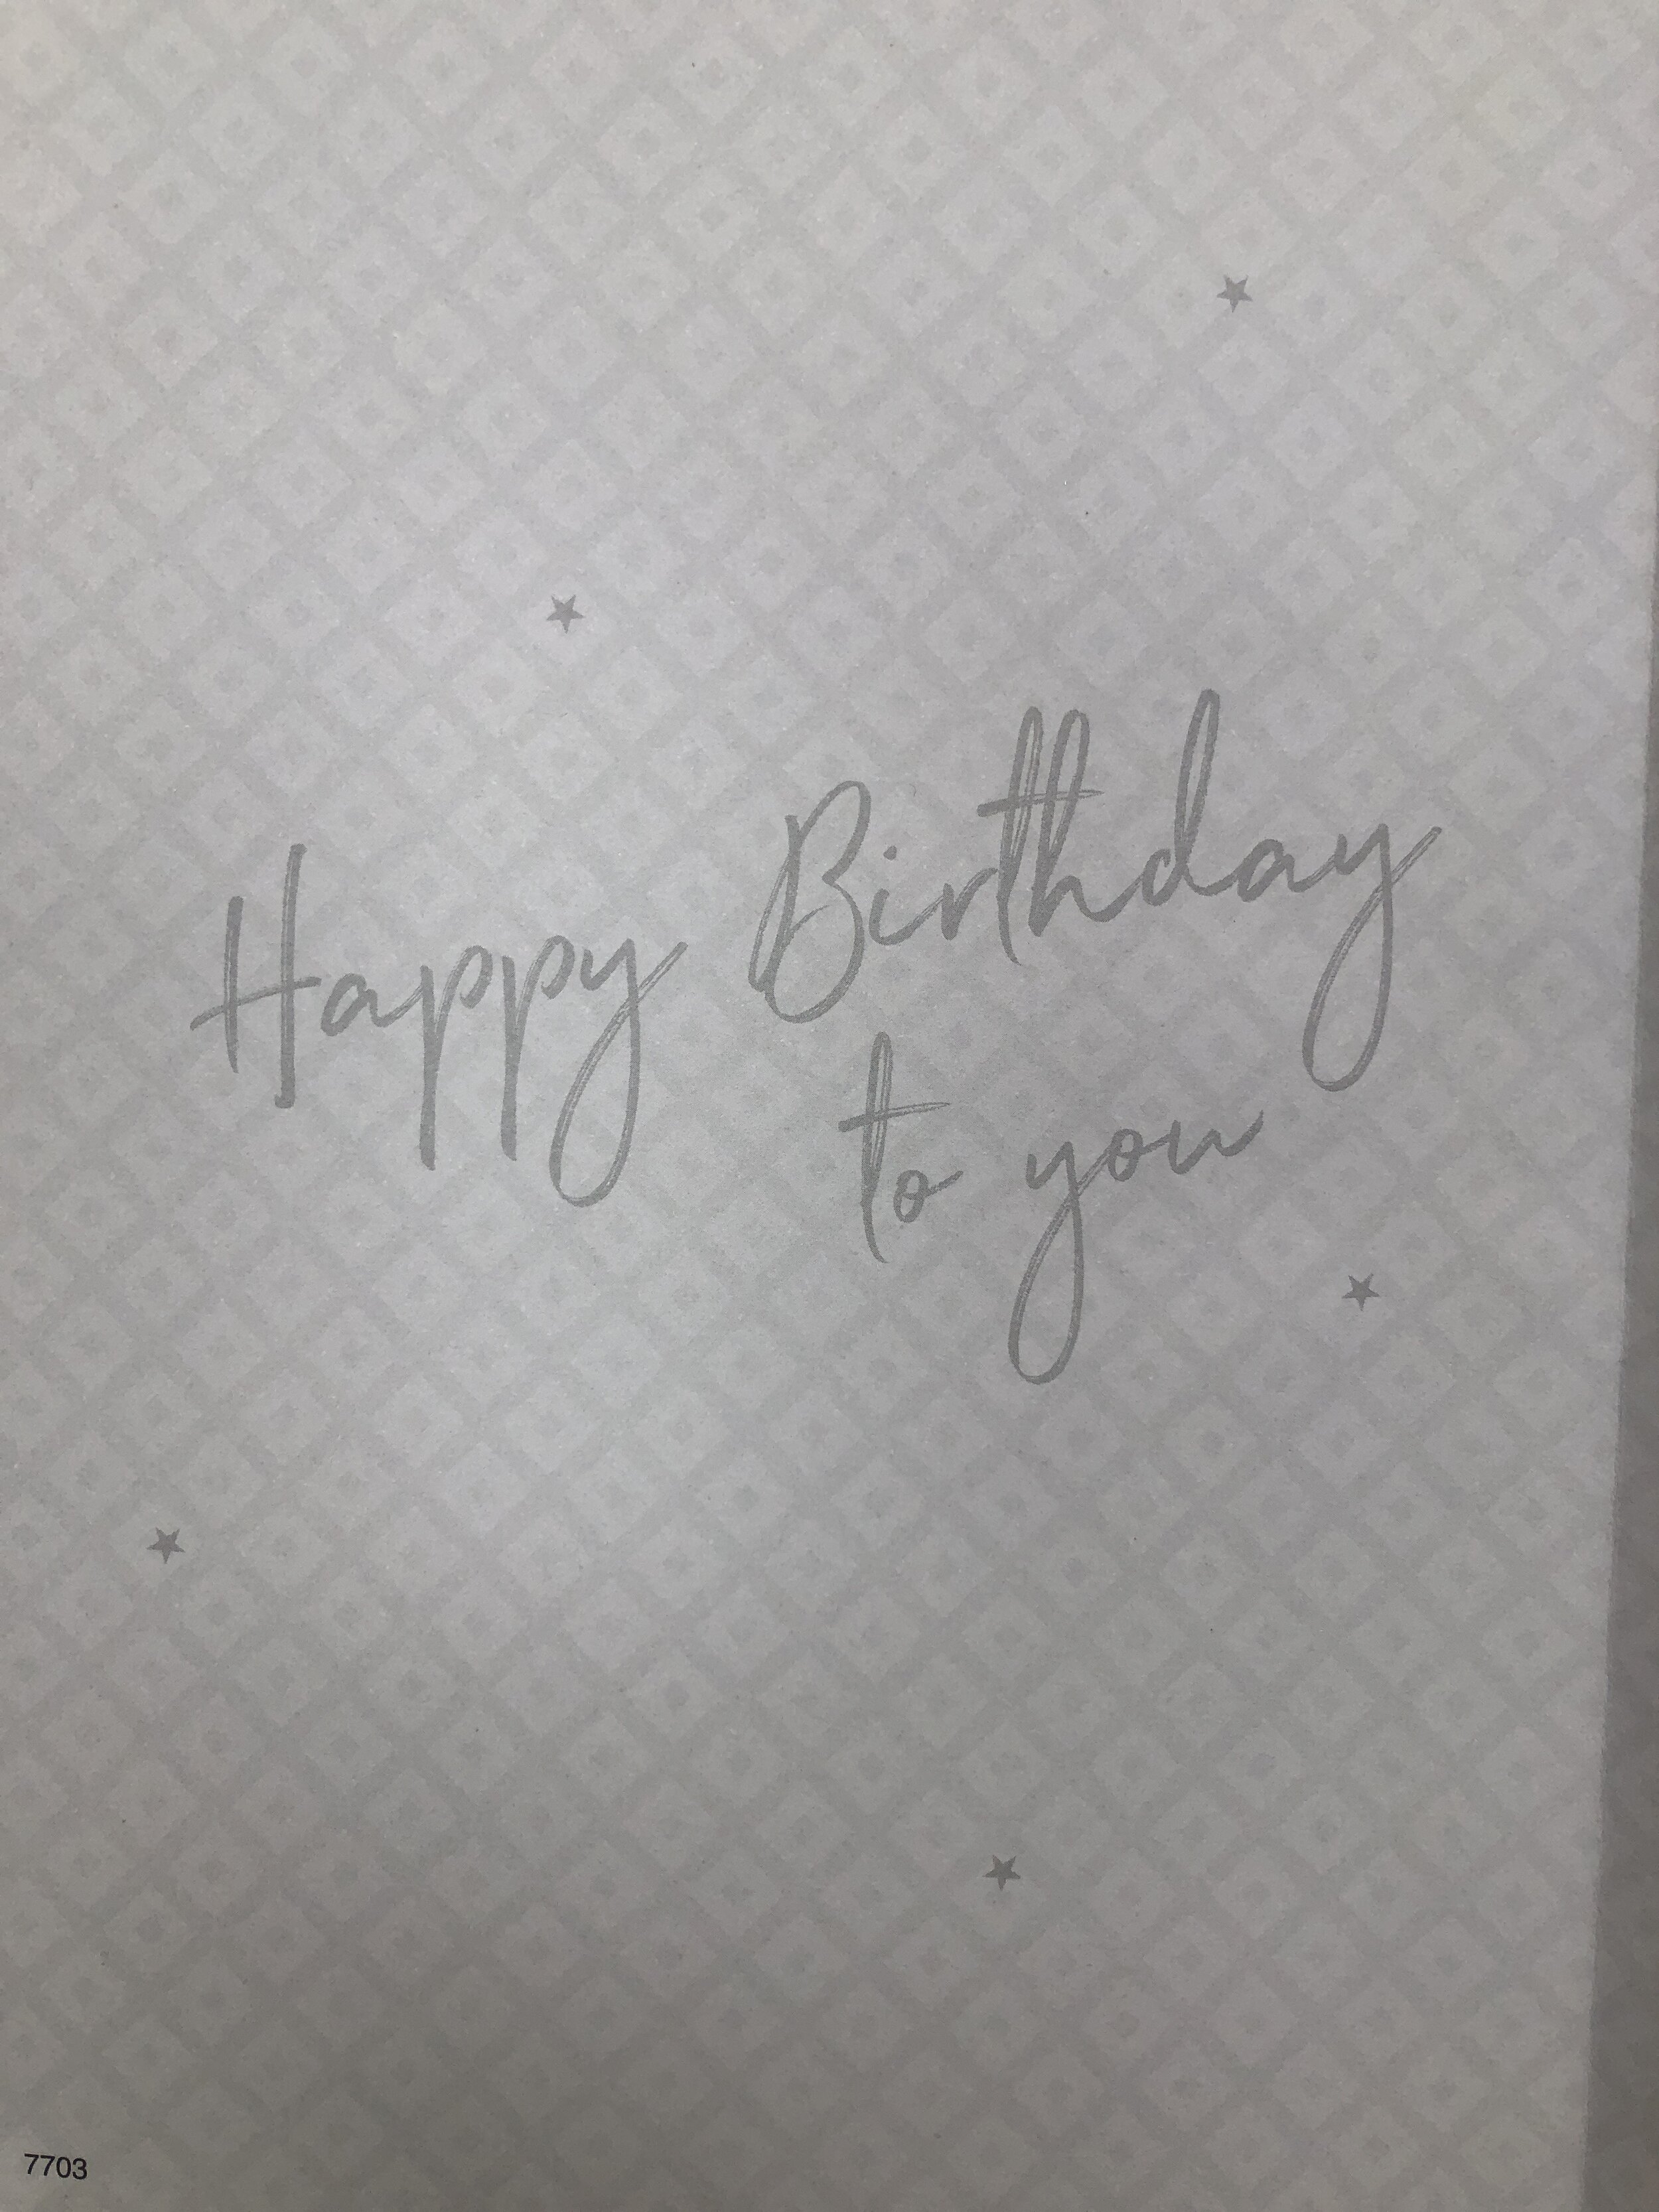 Happy Birthday
to you
7703